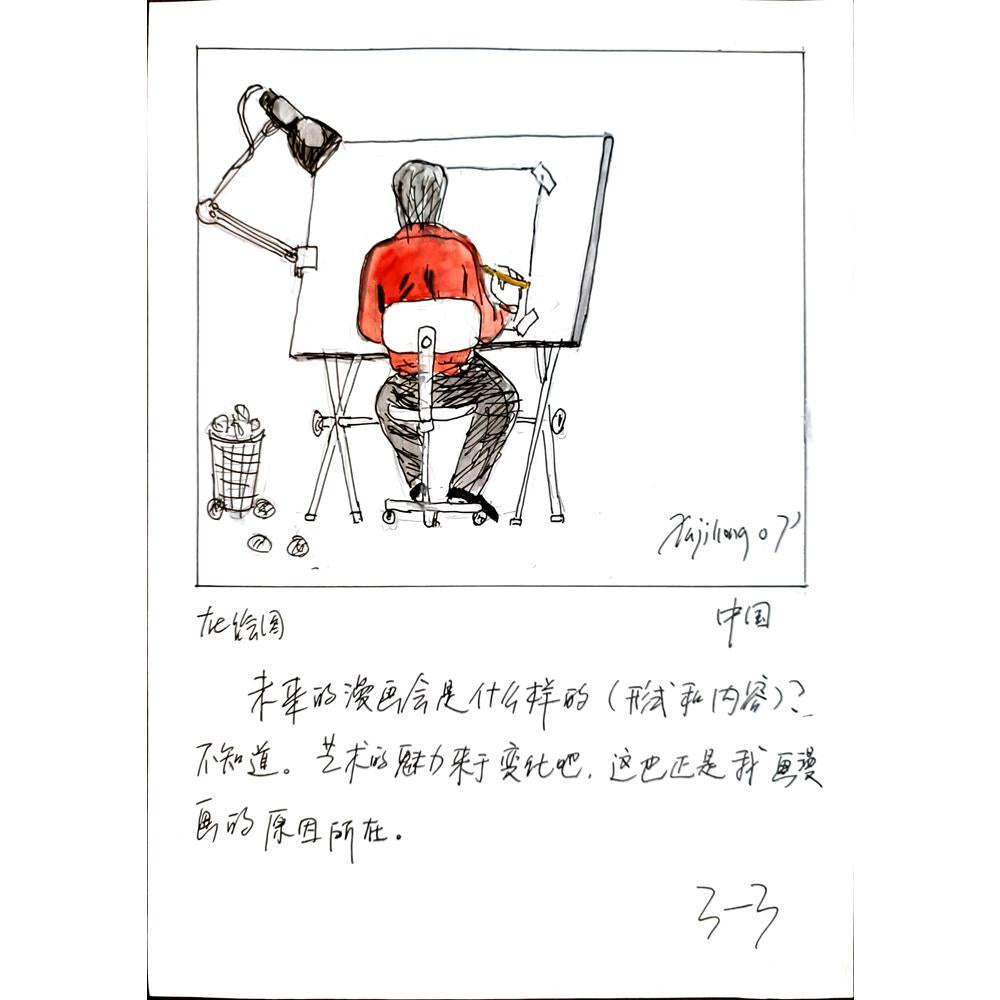 07'
绘图
中国
未来的漫画会是什么样的（形式和内容）？
不知道。艺术的魅力来于变化吧，这也正是我画漫
画的原因所在。
3-3